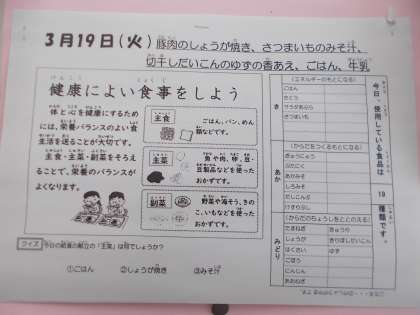 3月19日(火)
豚肉のしょうが焼き、さつまいものみそ汁、
切干しだいこんのゆずの香あえ、ごはん、牛乳
けんこう しょくじ
健康によい食事をしよう
体と心を健康にするため
には、栄養バランスのよい食
生活を送ることが大切です。
主食・主菜・副菜をそろえ
ることで、栄養のバランスが
よくなります。
主食
ごはん、パン、めん
類などです。
主菜
魚や肉、卵、豆・
豆製品などを使った
おかずです。
副菜
野菜や海そう、きの
こ、いもなどを使った
おかずです。
クイズ 今日の給食の献立の「主菜」は何でしょうか?
①ごはん ②しょうが焼き ③みそ汁
今日、使用している食品は 19 種類です。
き
(エネルギーのもとになる)
ごはん
さとう
サラダあぶら
さつまいも
あか
(からだをつくるもとになる)
ぎゅうにゅう
ぶたにく
あかみそ
しろみそ
だしにんこ
みどり
(からだのちょうしをととのえる)
たまねぎ きゅうり
しょうが きりぼしだいこん
はくさい ゆず
ごぼう
にんじん